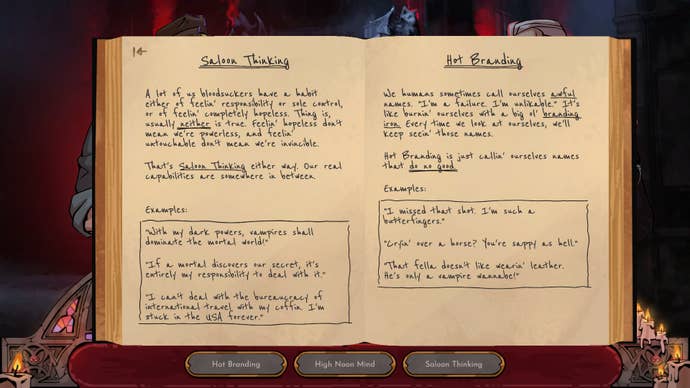 Saloon Thinking
A lot of us bloodsuckers have a habit
either of feelin' responsibility or sole control,
or of feelin' completely hopeless. Thing is,
usually neither is true. Feelin' hopeless don't
mean we're powerless, and feelin'
untouchable don't mean we're invincible.
That's Saloon Thinking either way. Our real
capabilities are somewhere in between.
Examples:
"With my dark powers, vampires shall
dominate the mortal world!"
"If a mortal discovers our secret, it's
entirely my responsibility to deal with it."
"I can't deal with the bureaucracy of
international travel with my coffin. I'm
stuck in the USA forever."
Hot Branding
We humans sometimes call ourselves awful
names. "I'm a failure. I'm unlikable." It's
like burnin' ourselves with a big ol' branding
iron. Every time we look at ourselves, we'll
keep seein' those names.
Hot Branding is just callin' ourselves names
that do no good.
Examples:
"I missed that shot. I'm such a
butterfingers."
"Cryin' over a horse? You're sappy as hell."
"That fella doesn't like wearin' leather.
He's only a vampire wannabe!"
Hot Branding
High Noon Mind
Saloon Thinking